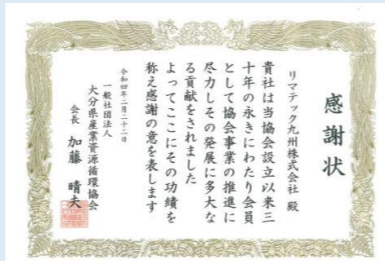 感謝状
リマテック九州株式会社 殿
貴社は当協会設立以来三
十年の永きにわたり会員
として協会事業の推進に
尽力しその発展に多大な
る貢献をされました
よってここにその功績を
称え感謝の意を表します
令和四年二月二十二日
一般社団法人
大分県産業資源循環協会
会長 加藤 晴夫